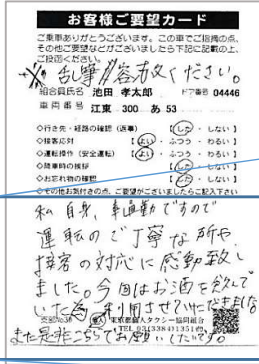 お客様ご要望カード
ご乗車ありがとうございます。この車でご指摘の点、
その他ご要望などがございましたら下記に記載の上、
ご投函ください。
乱筆ご容赦ください。
組合員氏名 池田 孝太郎 ドア番号 04446
車両番号 江東 300 あ 53
◇行き先・経路の確認(返事)【した・しない】
◇接客応対【よい・ふつう・わるい】
◇運転操作(安全運転)【よい・ふつう・わるい】
◇降車時の挨拶【した・しない】
◇お忘れ物の確認【した・しない】
◇その他お気付きの点、ご要望がございましたらご記入下さい
私自身、車通勤ですので
運転のご丁寧な所や
接客の対応に感動致し
ました。今回はお酒を飲んで
いた為、利用させていただきました
支部No.38 東京都個人タクシー協同組合
TEL 03(3384)1351
また是非こちらでお願いしたいです。